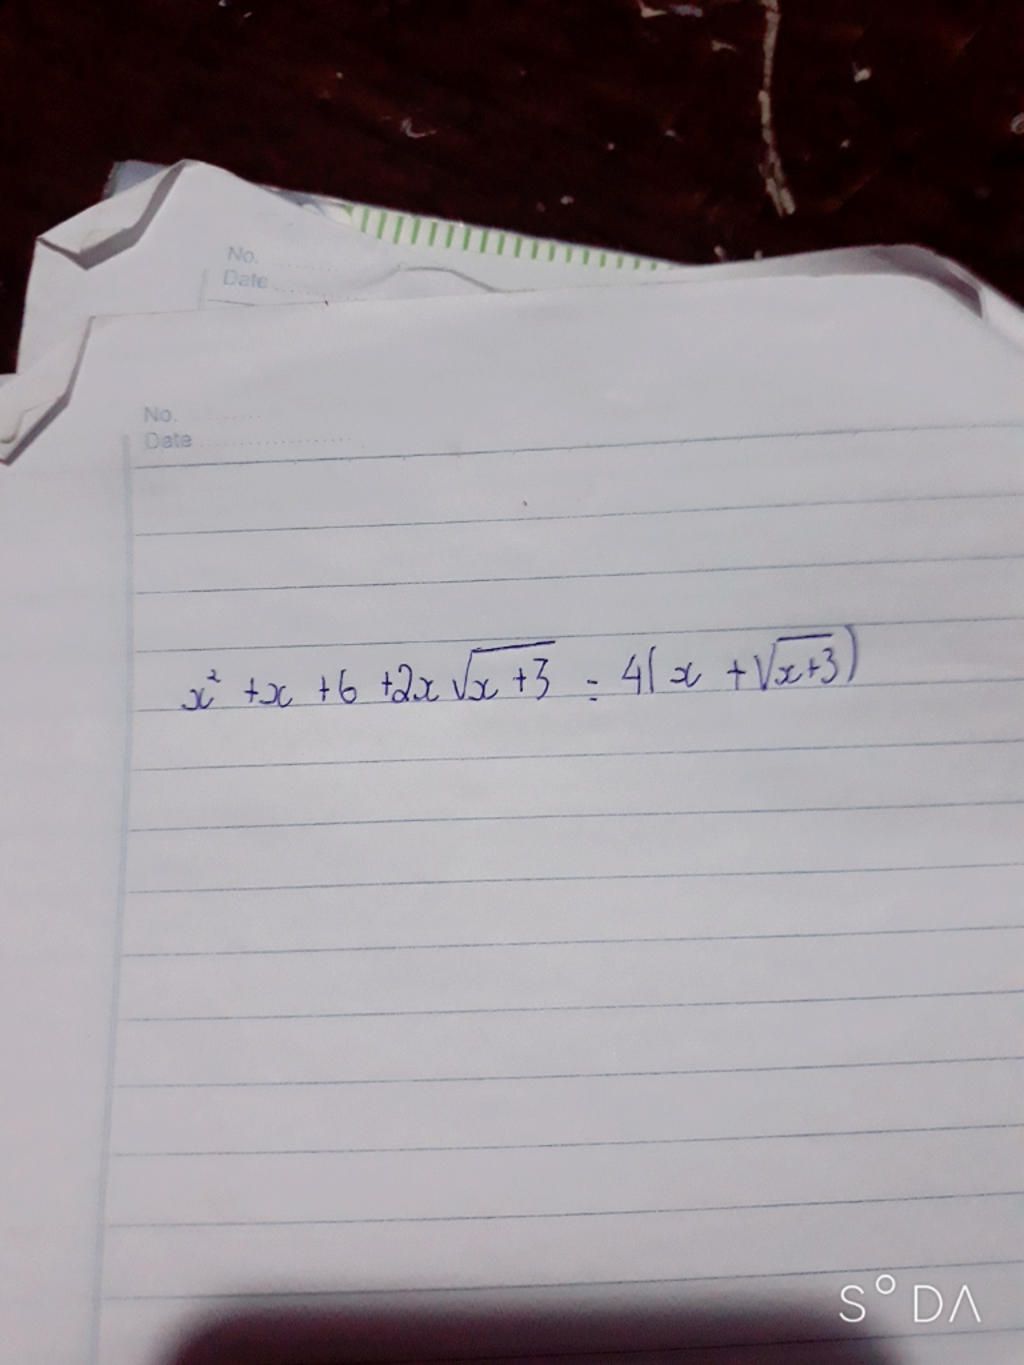 No. ............
Date ............
No. ............
Date ............
x² + x + 6 + 2x √(x + 3) = 4(x + √(x+3))
S°DΛ